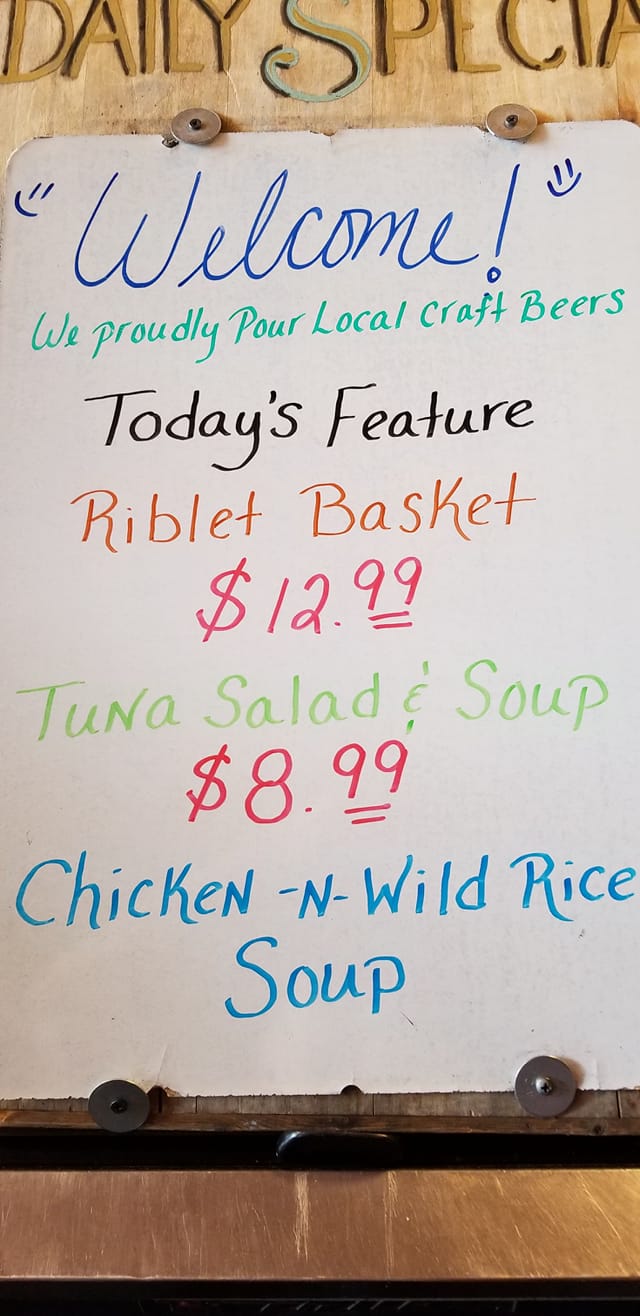 DAILY SPECIA
"Welcome!"
We proudly Pour Local Craft Beers
Today's Feature
Riblet Basket
$12.99
Tuna Salad & Soup
$8.99
Chicken -N- Wild Rice
Soup